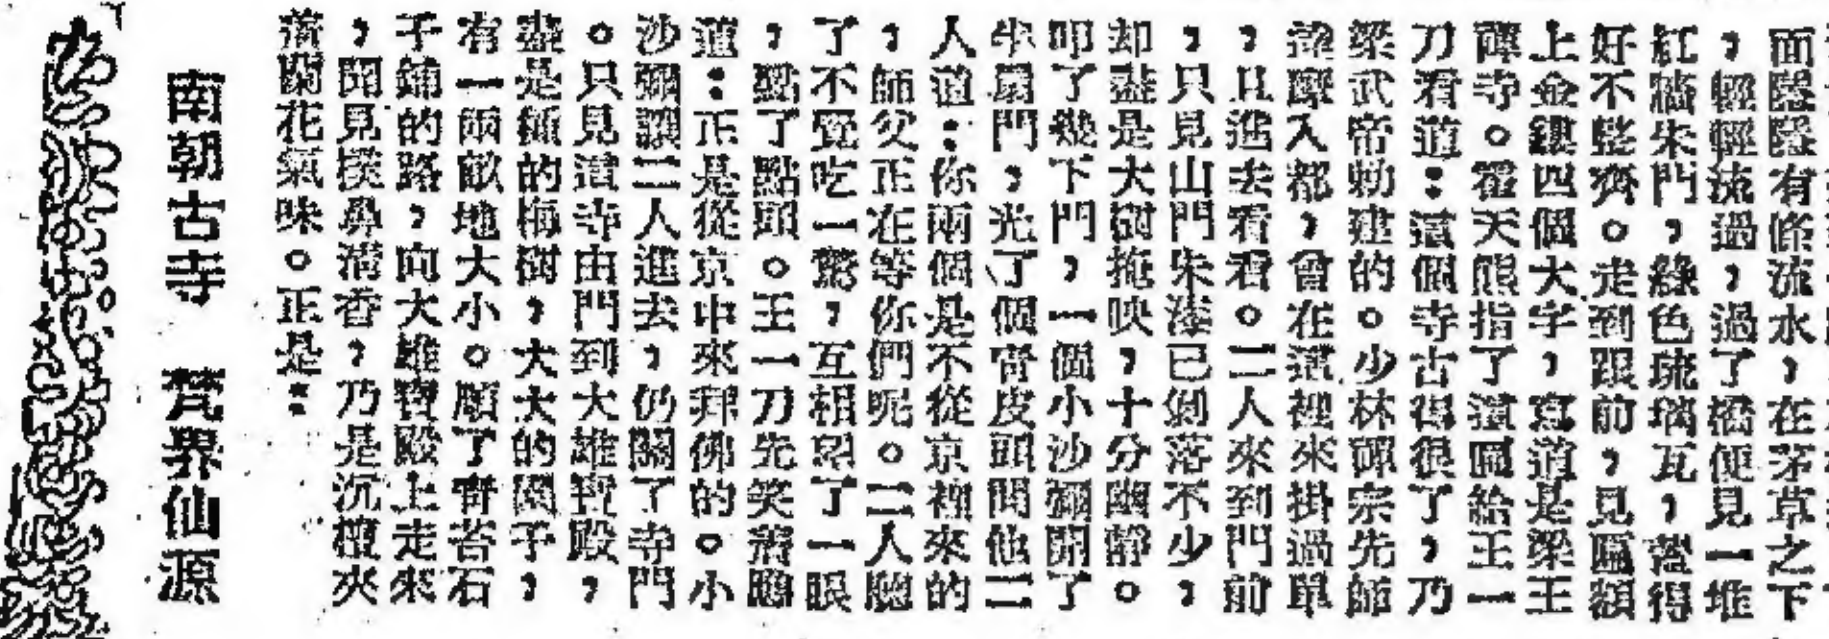 面隱隱有條流水，在茅草之下
，輕輕流過，過了橋便見一堆
紅牆朱門，綠色琉璃瓦，蓋得
好不整齊。走到跟前，見匾額
上金鏤四個大字，寫道是梁王
禪寺。霍天熊指了這匾給王一
刀看道：這個寺古得很了，乃
梁武帝勅建的。少林禪宗先師
達摩入都，曾在這裡來掛過單
，且進去看看。二人來到門前
，只見山門朱漆已剝落不少，
却盡是大樹掩映，十分幽靜。
叩了幾下門，一個小沙彌開了
半扇門，光了個青皮頭問他二
人道：你兩個是不從京裡來的
，師父正在等你們呢。二人聽
了不覺吃一驚，互相望了一眼
，點了點頭。王一刀先笑着應
道：正是從京中來拜佛的。小
沙彌讓二人進去，仍關了寺門
。只見這寺由門到大雄寶殿，
盡是種的梅樹，大大的園子，
有一兩畝地大小。順了青苔石
子鋪的路，向大雄寶殿上走來
，聞見撲鼻清香，乃是沉檀夾
着蘭花氣味。正是：
南朝古寺　梵界仙源